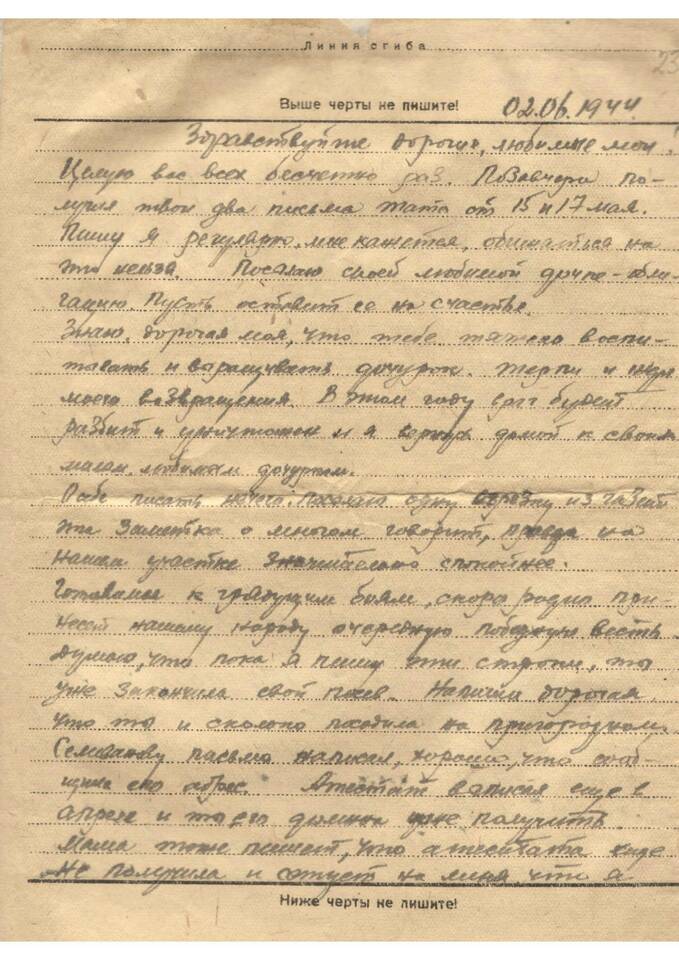 Линия сгиба
23
Выше черты не пишите! 02.06.1944.
Здравствуйте дорогие, любимые мои!
Целую вас всех бесчетно раз. Позавчера по-
лучил твои два письма тато от 15 и 17 мая.
Пишу я регулярно, мне кажется, обижаться на
это нельзя. Посылаю своей любимой дочке обли-
гацию. Пусть оставит ее на счастье.
Знаю, дорогая моя, что тебе тяжело воспи-
тывать и выращивать дочурок. Терпи и жди
моего возвращения. В этом году враг будет
разбит и уничтожен и я вернусь домой к своим
милым любимым дочуркам.
О себе писать нечего. Посылаю одну вырезку из газет
эта заметка о многом говорит, правда на
нашем участке значительно спокойнее.
Готовимся к грядущим боям, скоро радио при-
несет нашему народу очередную победную весть.
Думаю, что пока я пишу эти строки, ты
уже закончила свой посев. Напиши дорогая,
что ты и сколько посадила на пригородном.
Селиванову письмо написал, хорошо, что сооб-
щила его адрес. Аттестат выписал еще в
апреле и ты его должна уже получить.
Маша тоже пишет, что аттестата еще
не получила и сетует на меня что я
Ниже черты не пишите!